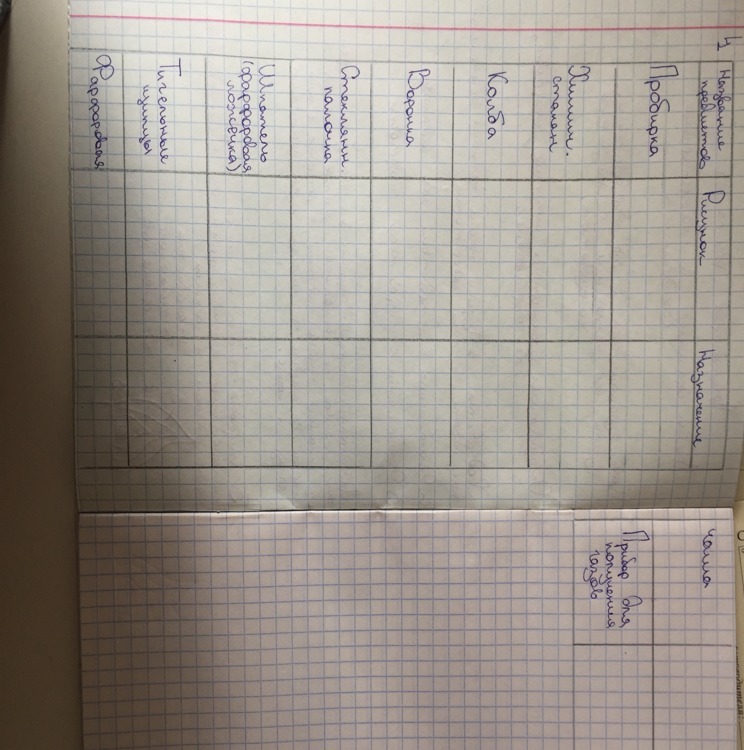 4
Название
предметов
Рисунок
Назначение
Пробирка
Химич.
стакан
Колба
Воронка
Стеклянн.
палочка
Шпатель
(фарфоровая
ложечка)
Тигельные
щипцы
Фарфоровая
чашка
Прибор для
получения
газов